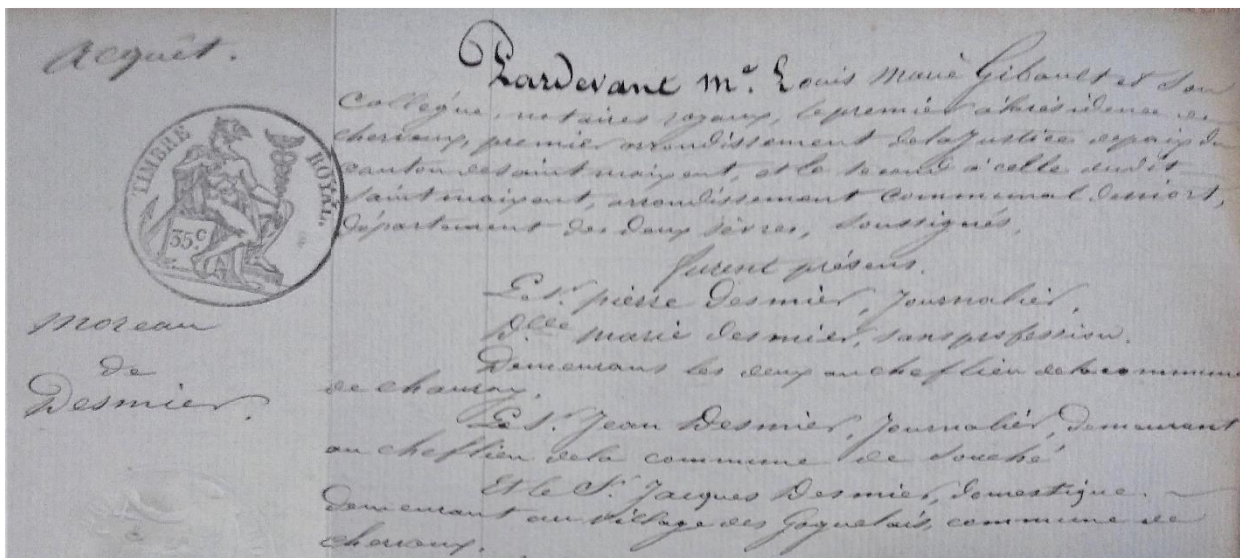 Acquêt.
TIMBRE ROYAL.
35 c.
Moreau
de
Desmier.
Pardevant Mᵉ. Louis Marie Gibault et Son
Collègue, notaires royaux, le premier à la résidence de
cherveux, premier arrondissement de la Justice de paix du
canton de saint maixent, et le second à celle dudit
saint maixent, arrondissement communal de niort,
département des deux sèvres, soussignés,
furent présens.
Le Sʳ. pierre Desmier, Journalier,
Dˡˡᵉ marie desmier, sans profession.
Demeurans les deux au cheflieu de la commune
de chauray,
Le Sʳ. Jean Desmier, Journalier, demeurant
au cheflieu de la commune de Souché
Et le Sʳ. Jacques Desmier, domestique.
demeurant au village des Goguelais, commune de
cherveux.